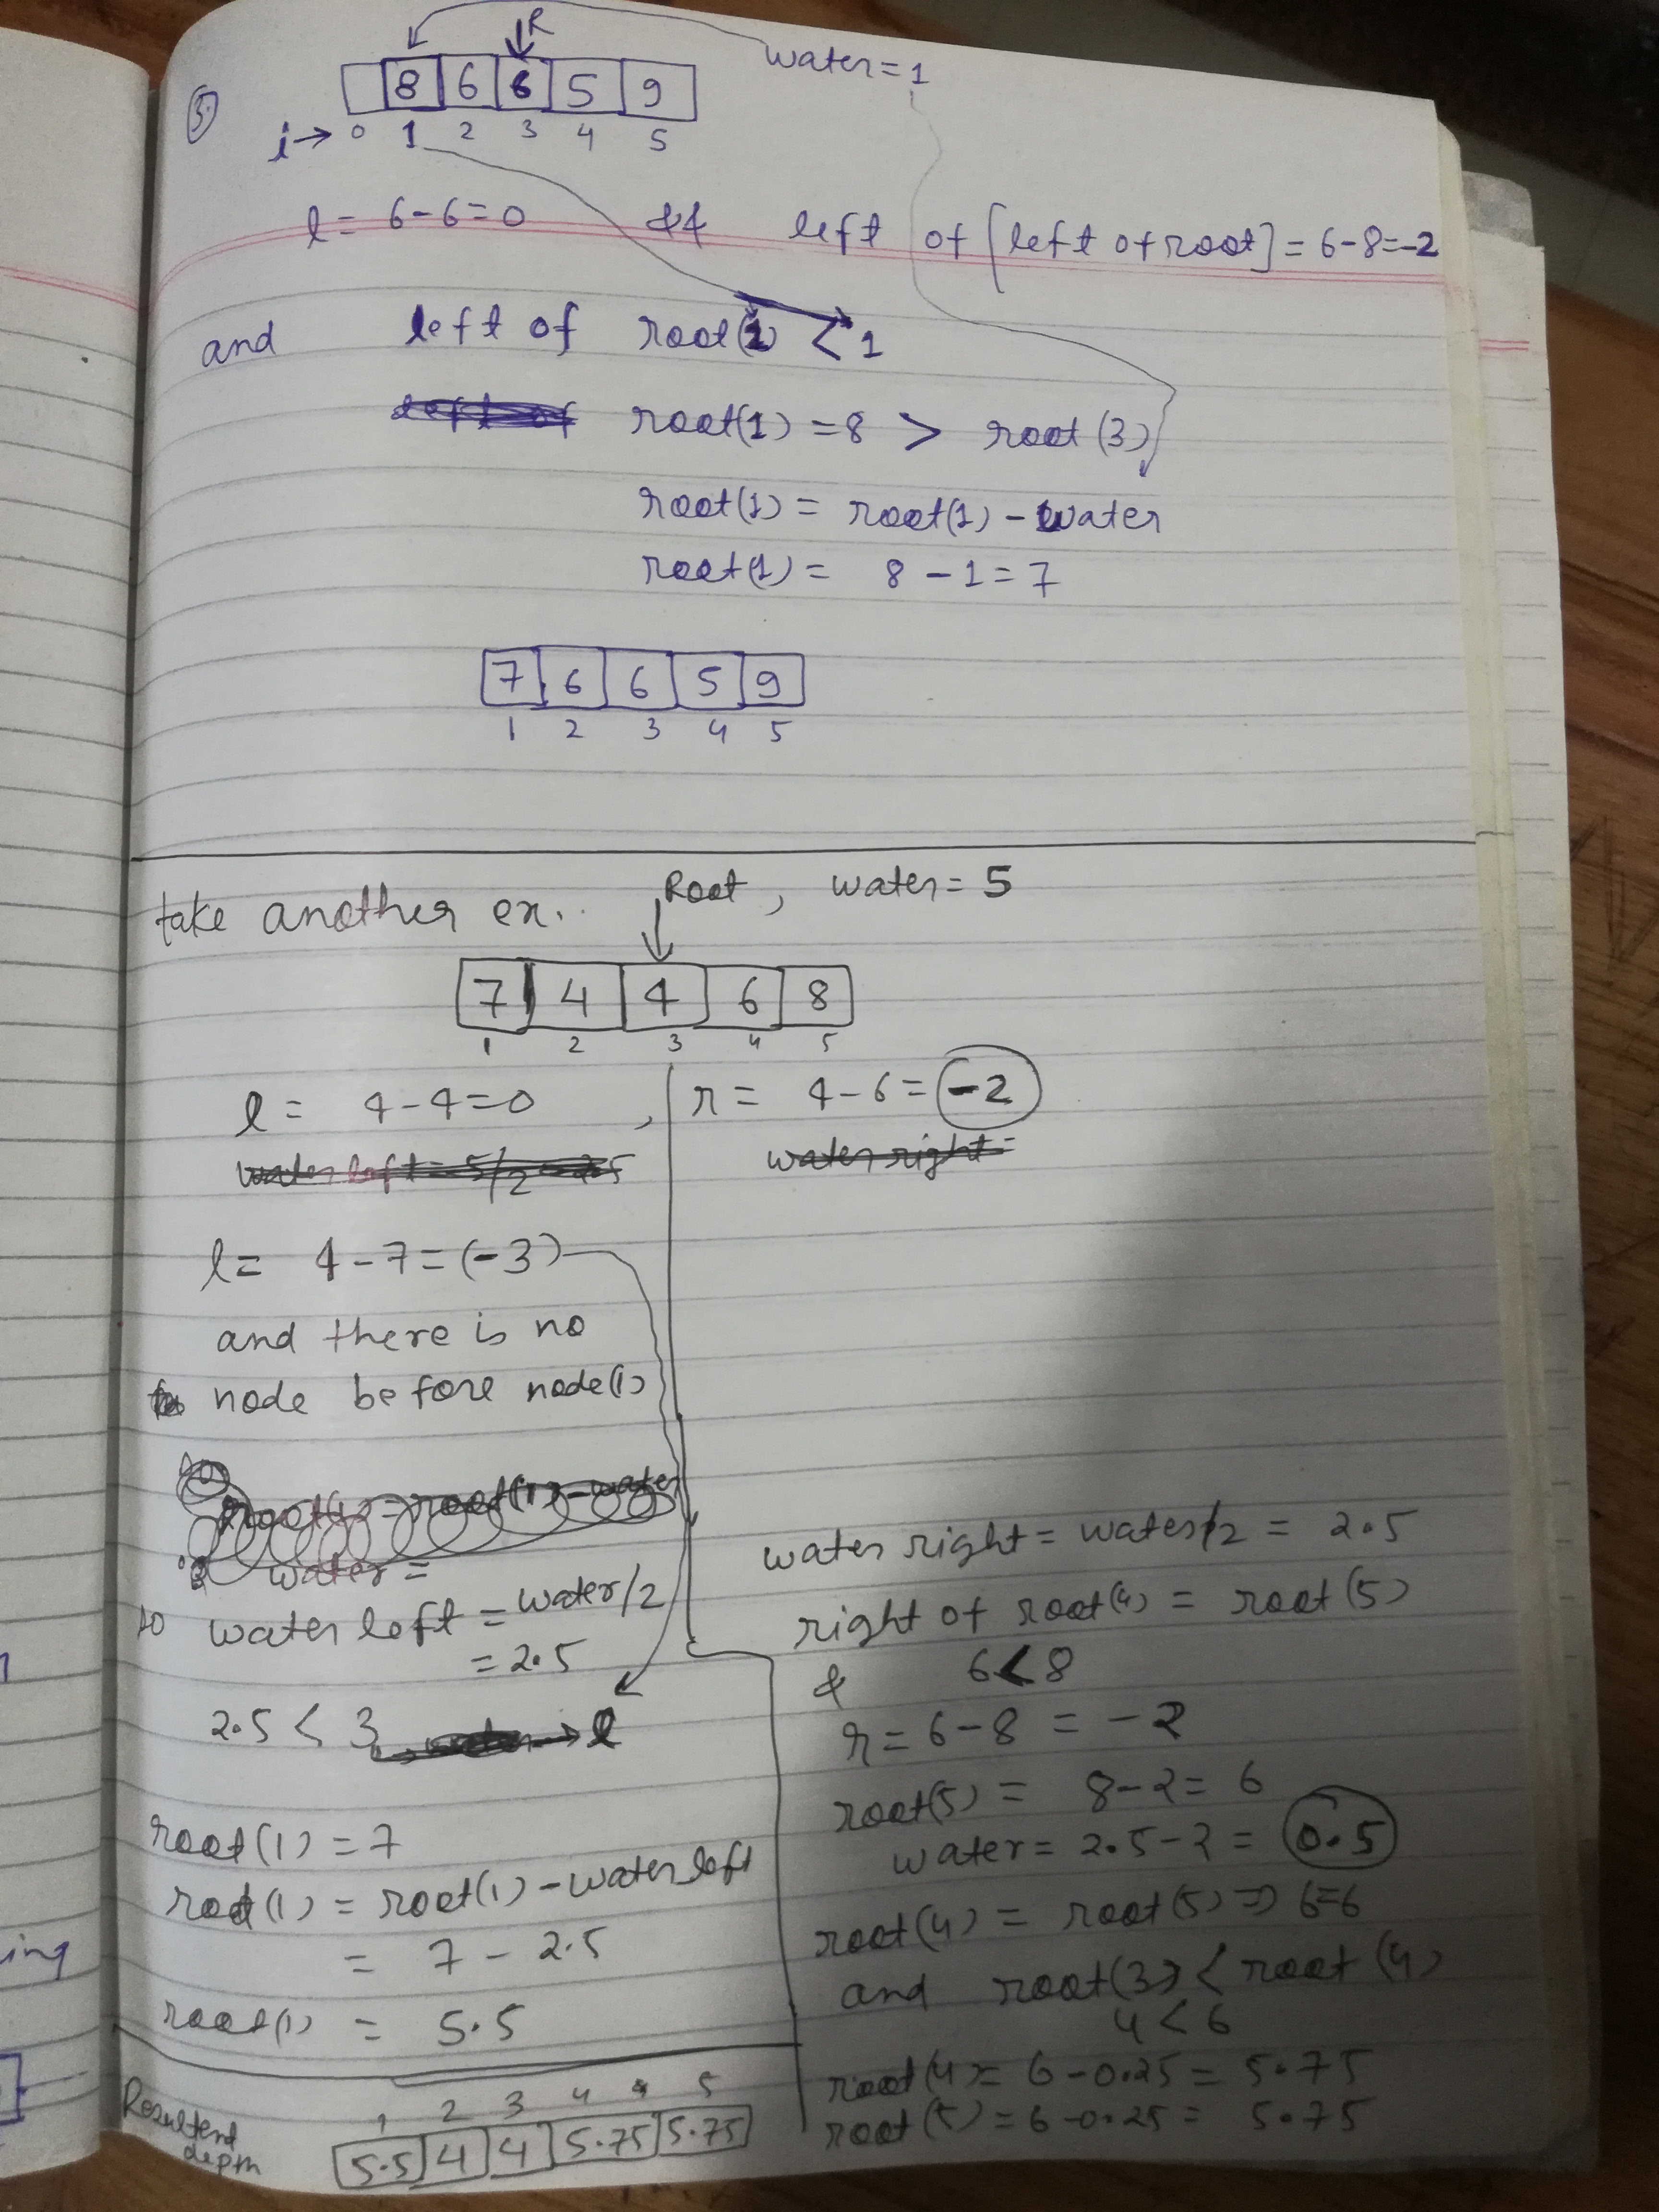 5.
R
water = 1
8 6 6 5 9
i → 0 1 2 3 4 5
l = 6-6=0 && left of [left of root] = 6-8=-2
and left of root(2) < 1
left of root(1) = 8 > root(3)
root(1) = root(1) - water
root(1) = 8 - 1 = 7
7 6 6 5 9
1 2 3 4 5
take another ex.. Root, water = 5
7 4 4 6 8
1 2 3 4 5
l = 4-4=0 ,
water left = 5/2 = 2.5
l = 4-7=(-3)
and there is no
node before node(1)
root(1) = root(1) - water
water =
so water left = water/2
= 2.5
2.5 < 3 → l
root(1) = 7
root(1) = root(1) - water left
= 7 - 2.5
root(1) = 5.5
r = 4-6 = -2
water right =
water right = water/2 = 2.5
right of root(4) = root(5)
& 6<8
r = 6-8 = -2
root(5) = 8-2= 6
water = 2.5-2 = 0.5
root(4) = root(5) => 6=6
and root(3) < root(4)
4 < 6
root(4) = 6-0.25 = 5.75
root(5) = 6-0.25 = 5.75
Resultent
depth
1 2 3 4 5
5.5 4 4 5.75 5.75
ing